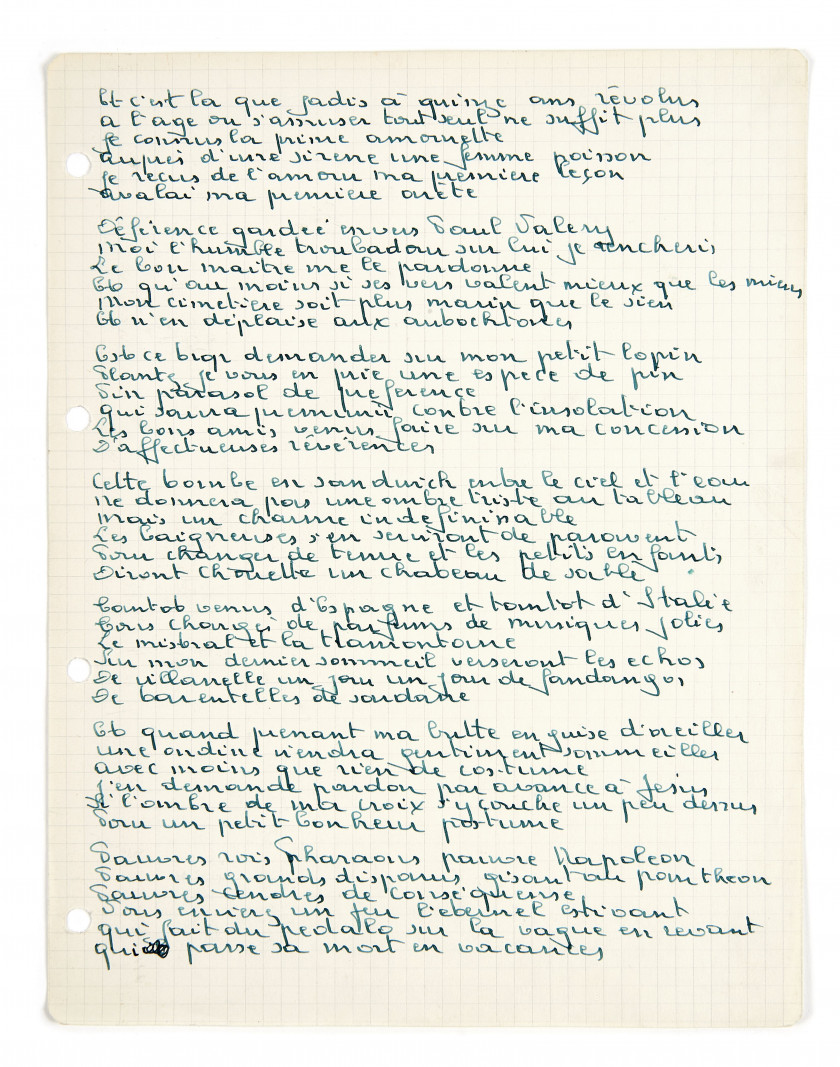 Et c'est la que jadis à quinze ans révolus
a l'age ou s'amuser tout seul ne suffit plus
je connus la prime amourette
auprès d'une sirene une femme poisson
je reçus de l'amour ma première leçon
avalai ma première arète
Déférence gardeé envers Paul Valery
Moi l'humble troubadour sur lui je rencheris
Le bon maitre me le pardonne
Et qu'au moins si ses vers valent mieux que les miens
Mon cimetière soit plus marin que le sien
Et n'en déplaise aux autochtones
Est ce trop demander sur mon petit lopin
Plantez je vous en prie une espece de pin
Pin parasol de preference
qui saura premunir contre l'insolation
Les bons amis venus faire sur ma concession
D'affectueuses révérences
Cette tombe en sandwich entre le ciel et l'eau
ne donnera pas une ombre triste au tableau
mais un charme indefininable
Les baigneuses s'en serviront de paravent
Pour changer de tenue et les petits enfants
Diront Chouette un chateau de sable
Tantot venus d'Espagne et tantot d'Italie
Tous chargés de parfums de musiques jolies
Le mistral et la tramontane
Sur mon dernier sommeil verseront les echos
De villanelle un jour un jour de fandangos
De tarentelles de sardane
Et quand prenant ma butte en guise d'oreiller
une ondine viendra gentiment sommeiller
avec moins que rien de costume
J'en demande pardon par avance à Jesus
Si l'ombre de ma croix s'y couche un peu dessus
Pour un petit bonheur postume
Pauvres rois Pharaons pauvre Napoleon
Pauvres grands disparus gisant au pantheon
Pauvres cendres de conséquense
Vous envierez un peu l'eternel estivant
qui fait du pedalo sur la vague en revant
qui passe sa mort en vacances